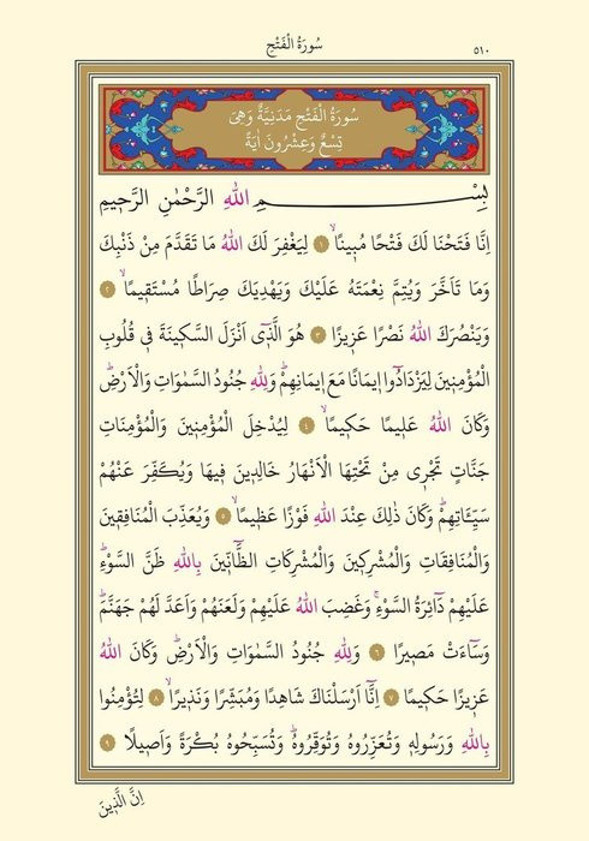 ٥١٠
سُورَةُ الْفَتْحِ
سُورَةُ الْفَتْحِ مَدَنِيَّةٌ وَهِيَ
تِسْعٌ وَعِشْرُونَ اٰيَةً
بِسْمِ اللّٰهِ الرَّحْمٰنِ الرَّح۪يمِ
اِنَّا فَتَحْنَا لَكَ فَتْحًا مُب۪ينًاۙ ﴿١﴾ لِيَغْفِرَ لَكَ اللّٰهُ مَا تَقَدَّمَ مِنْ ذَنْبِكَ
وَمَا تَاَخَّرَ وَيُتِمَّ نِعْمَتَهُ عَلَيْكَ وَيَهْدِيَكَ صِرَاطًا مُسْتَق۪يمًاۙ ﴿٢﴾
وَيَنْصُرَكَ اللّٰهُ نَصْرًا عَز۪يزًا ﴿٣﴾ هُوَ الَّذ۪ٓي اَنْزَلَ السَّك۪ينَةَ ف۪ي قُلُوبِ
الْمُؤْمِن۪ينَ لِيَزْدَادُٓوا ا۪يمَانًا مَعَ ا۪يمَانِهِمْۜ وَلِلّٰهِ جُنُودُ السَّمٰوَاتِ وَالْاَرْضِۜ
وَكَانَ اللّٰهُ عَل۪يمًا حَك۪يمًاۙ ﴿٤﴾ لِيُدْخِلَ الْمُؤْمِن۪ينَ وَالْمُؤْمِنَاتِ
جَنَّاتٍ تَجْر۪ي مِنْ تَحْتِهَا الْاَنْهَارُ خَالِد۪ينَ ف۪يهَا وَيُكَفِّرَ عَنْهُمْ
سَيِّـَٔاتِهِمْۜ وَكَانَ ذٰلِكَ عِنْدَ اللّٰهِ فَوْزًا عَظ۪يمًاۙ ﴿٥﴾ وَيُعَذِّبَ الْمُنَافِق۪ينَ
وَالْمُنَافِقَاتِ وَالْمُشْرِك۪ينَ وَالْمُشْرِكَاتِ الظَّٓانّ۪ينَ بِاللّٰهِ ظَنَّ السَّوْءِۜ
عَلَيْهِمْ دَٓائِرَةُ السَّوْءِۚ وَغَضِبَ اللّٰهُ عَلَيْهِمْ وَلَعَنَهُمْ وَاَعَدَّ لَهُمْ جَهَنَّمَۜ
وَسَٓاءَتْ مَص۪يرًا ﴿٦﴾ وَلِلّٰهِ جُنُودُ السَّمٰوَاتِ وَالْاَرْضِۜ وَكَانَ اللّٰهُ
عَز۪يزًا حَك۪يمًا ﴿٧﴾ اِنَّٓا اَرْسَلْنَاكَ شَاهِدًا وَمُبَشِّرًا وَنَذ۪يرًاۙ ﴿٨﴾ لِتُؤْمِنُوا
بِاللّٰهِ وَرَسُولِه۪ وَتُعَزِّرُوهُ وَتُوَقِّرُوهُۜ وَتُسَبِّحُوهُ بُكْرَةً وَاَص۪يلًا ﴿٩﴾
اِنَّ الَّذ۪ينَ